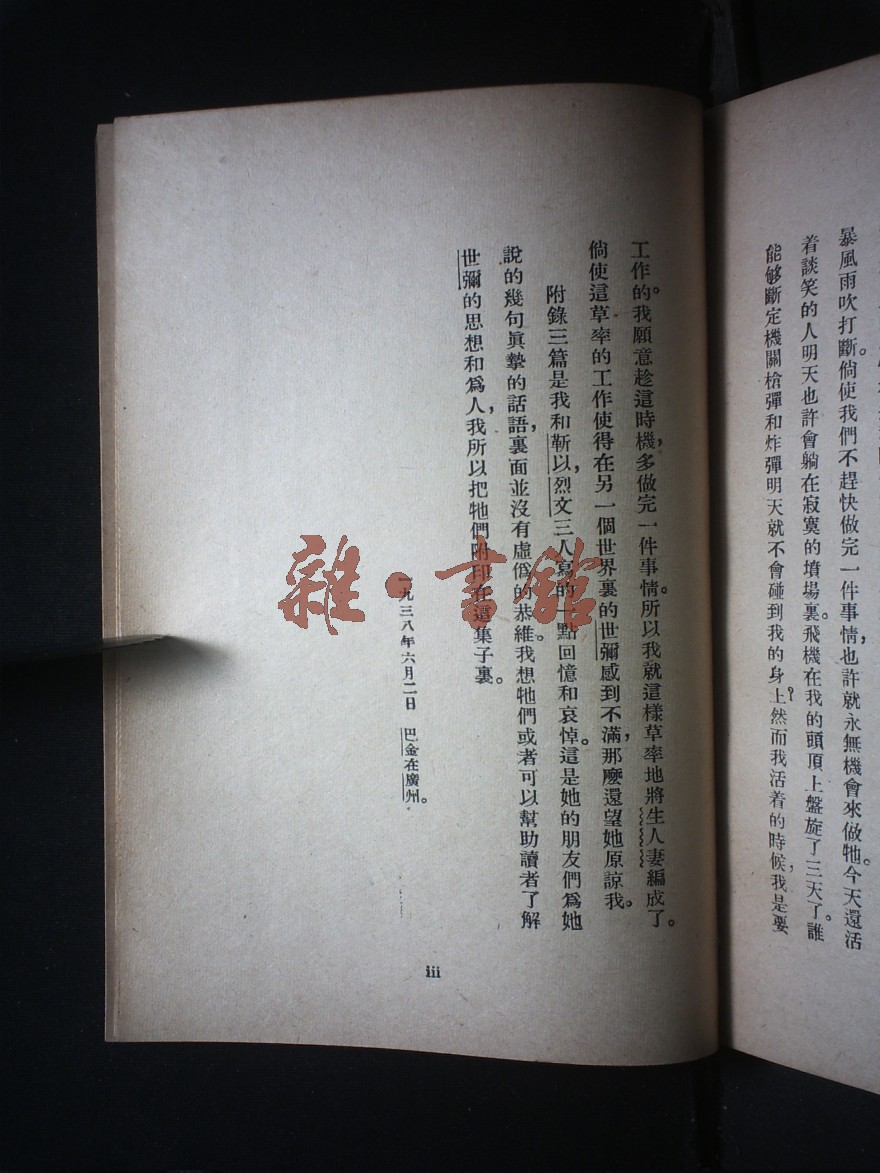 暴風雨吹打斷。倘使我們不趕快做完一件事情，也許就永無機會來做牠。今天還活
着談笑的人明天也許會躺在寂寞的墳場裏。飛機在我的頭頂上盤旋了三天了。誰
能够斷定機關槍彈和炸彈明天就不會碰到我的身上？然而我活着的時候，我是要
工作的。我願意趁這時機，多做完一件事情。所以我就這樣草率地將生人妻編成了。
倘使這草率的工作使得在另一個世界裏的世彌感到不滿，那麼還望她原諒我。
附錄三篇是我和靳以，烈文三人寫的一點回憶和哀悼。這是她的朋友們爲她
說的幾句眞摯的話語，裏面並沒有虛僞的恭維。我想牠們或者可以幫助讀者了解
世彌的思想和爲人，我所以把牠們附印在這集子裏。
一九三八年六月二日 巴金在廣州。
iii
雜·書館